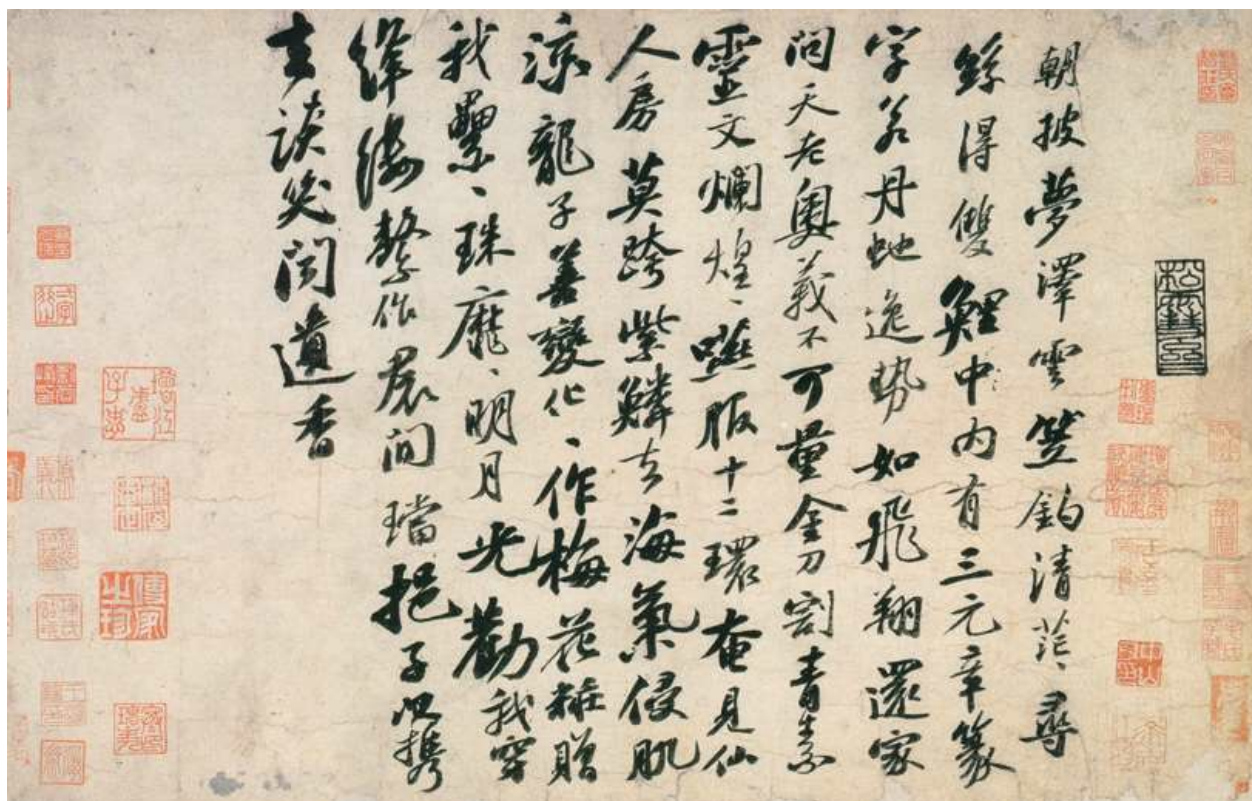 朝披夢澤雲笠釣清茫〻尋
絲得雙鯉中内有三元章篆
字若丹虵逸勢如飛翔還家
問天老奥義不可量金刀割青素
靈文爛煌〻嚥服十二環奄見仙
人房莫跨紫鱗去海氣侵肌
涼龍子善變化〻作梅花粧贈
我纍〻珠靡〻明月光勸我穿
絳縷繫作裠間璫挹子以攜
去談笑聞遺香